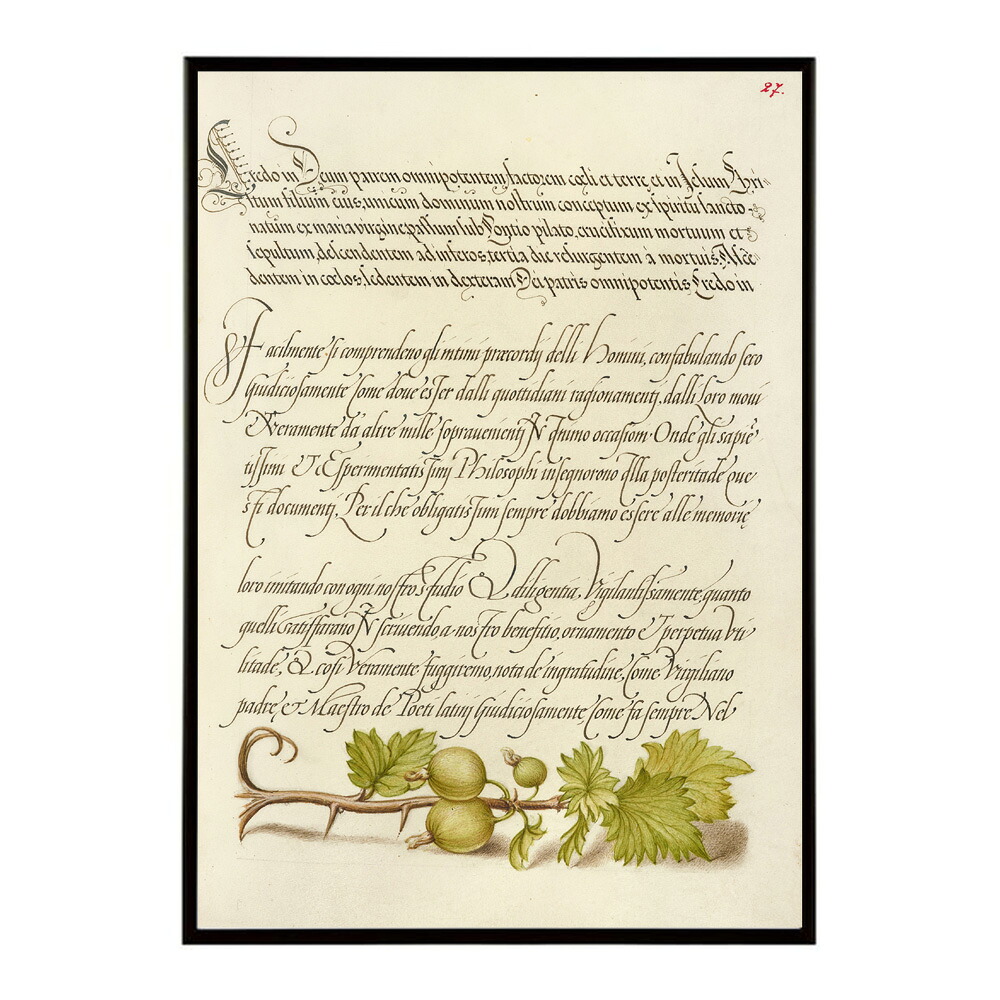 27.
Credo in Deum patrem omnipotentem, factorem cœli et terre, et in Jesum Chri
stum filium eius, unicum dominum nostrum conceptum ex spiritu sancto
natum ex maria virgine, passum sub Pontio pilato, crucifixum mortuum et
sepultum, descendentem ad inferos, tertia die resurgentem à mortuis. Ascē
dentem in cœlos, sedentem in dexteram Dei patris omnipotentis Credo in
Facilmente si comprendeno gli intimi præcordij delli Homini, confabulando seco
Giudiciosamente Come doue esser dalli quottidiani ragionamenti, dalli Loro moui
Et Veramente da altre mille sopravenienti IN quino occasioni Onde gli sapiē
tissimi ET Esperimentatissimj Philosophi insegnorono Alla posteritade que
sti documentj. Per il che obligatissimi sempre dobbiamo essere alle memorie
loro imitando con ogni nostro studio Et diligentia, Vigilantissamente, quanto
quelli satisffarano IN scrivendo, a nostro benefitio, ornamento Et perpetua Vti
litade, Et cosi Veramente fuggiremo, nota de ingratitudine, Come Virgiliano
padre, et Maestro de Poeti latinj Giudiciosamente, Come fa sempre Nel